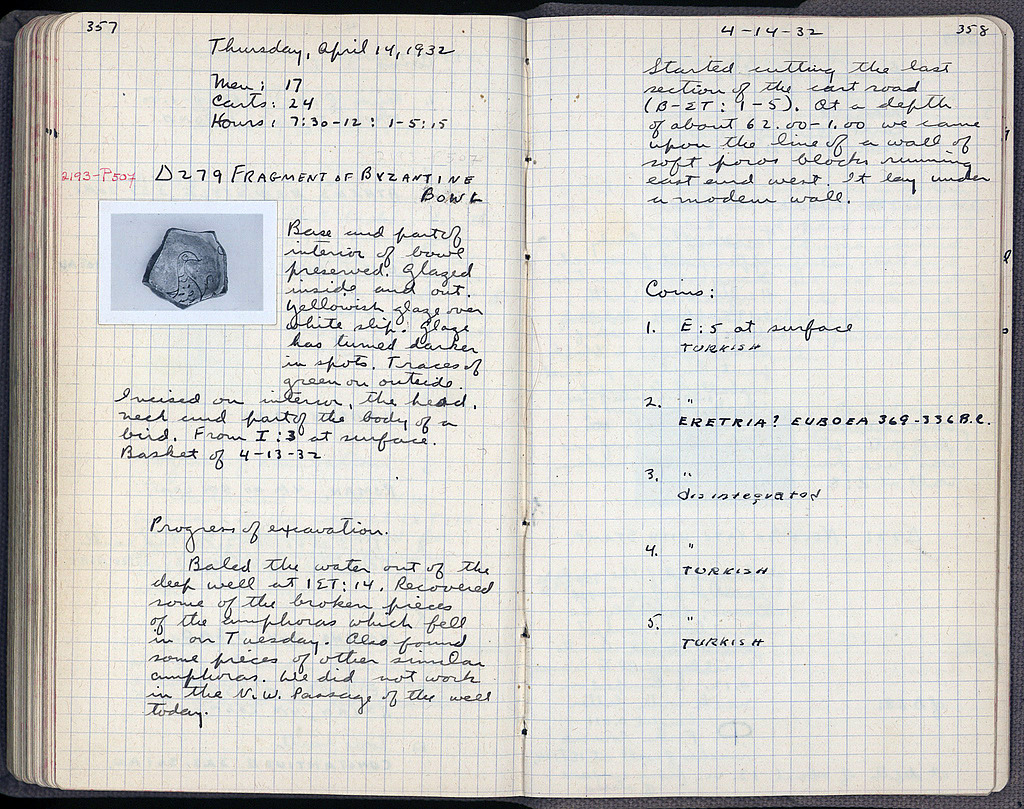 357
Thursday, April 14, 1932
Men: 17
Carts: 24
Hours: 7:30-12: 1-5:15
2193-P507 D279 FRAGMENT OF BYZANTINE
BOWL
Base and part of
interior of bowl
preserved. Glazed
inside and out.
Yellowish glaze over
white slip. Glaze
has turned darker
in spots. Traces of
green on outside.
Incised on interior, the head,
neck and part of the body of a
bird. From I:3 at surface.
Basket of 4-13-32
Progress of excavation.
Baled the water out of the
deep well at IΣT:14. Recovered
some of the broken pieces
of the amphoras which fell
in on Tuesday. Also found
some pieces of other similar
amphoras. We did not work
in the N.W. Passage of the well
today.
4-14-32
358
Started cutting the last
section of the cart road
(B-ΣT: 1-5). At a depth
of about 62.00-1.00 we came
upon the line of a wall of
soft poros blocks running
east and west. It lay under
a modern wall.
Coins:
1. E:5 at surface
TURKISH
2. "
ERETRIA? EUBOEA 369-336 B.C.
3. "
disintegrated
4. "
TURKISH
5. "
TURKISH